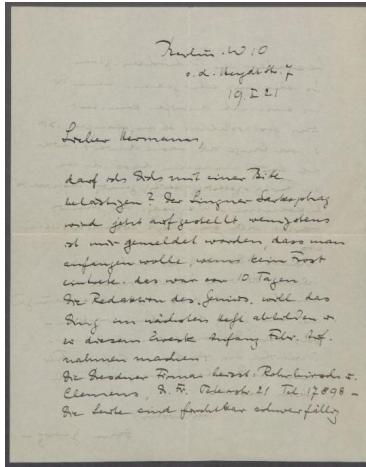 Berlin. W10
v. d. Heydtstr. 7
19.I 21
Lieber Hermann
darf ich Dich mit einer Bitte
belästigen? Der Lingner Sarkophag
wird jetzt aufgestellt, wenigstens
ist mir gemeldet worden, dass man
anfangen wolle, wenn kein Frost
eintrete. das war vor 10 Tagen.
Die Redaktion des Genius, will das
Ding im nächsten Heft abbilden u
zu diesem Zweck Anfang Febr. Auf-
nahmen machen.
Die Dresdner Firma heisst: Rohrhirsch u.
Clemens, D. Fr. Peterstr. 21 Tel. 17898 –
Die Leute sind furchtbar schwerfällig